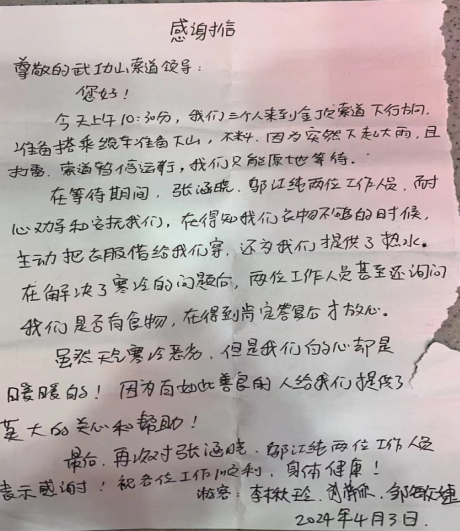 感谢信
尊敬的武功山索道领导:
您好!
今天上午10:30分,我们三个人来到金顶索道下行方向,
准备搭乘缆车准备下山,不料,因为突然下起大雨,且
打雷,索道暂停运行,我们只能原地等待。
在等待期间,张涵晓、邬江纯两位工作人员,耐
心劝导和安抚我们,在得知我们衣物不够的时候,
主动把衣服借给我们穿,还为我们提供了热水。
在解决了寒冷的问题后,两位工作人员甚至还询问
我们是否有食物,在得到肯定答复后才放心。
虽然天气寒冷恶劣,但是我们的心却是
暖暖的!因为有如此善良的人给我们提供了
莫大的关心和帮助!
最后,再次对张涵晓、邬江纯两位工作人员
表示感谢!祝各位工作顺利,身体健康!
游客:李
2024年4月3日